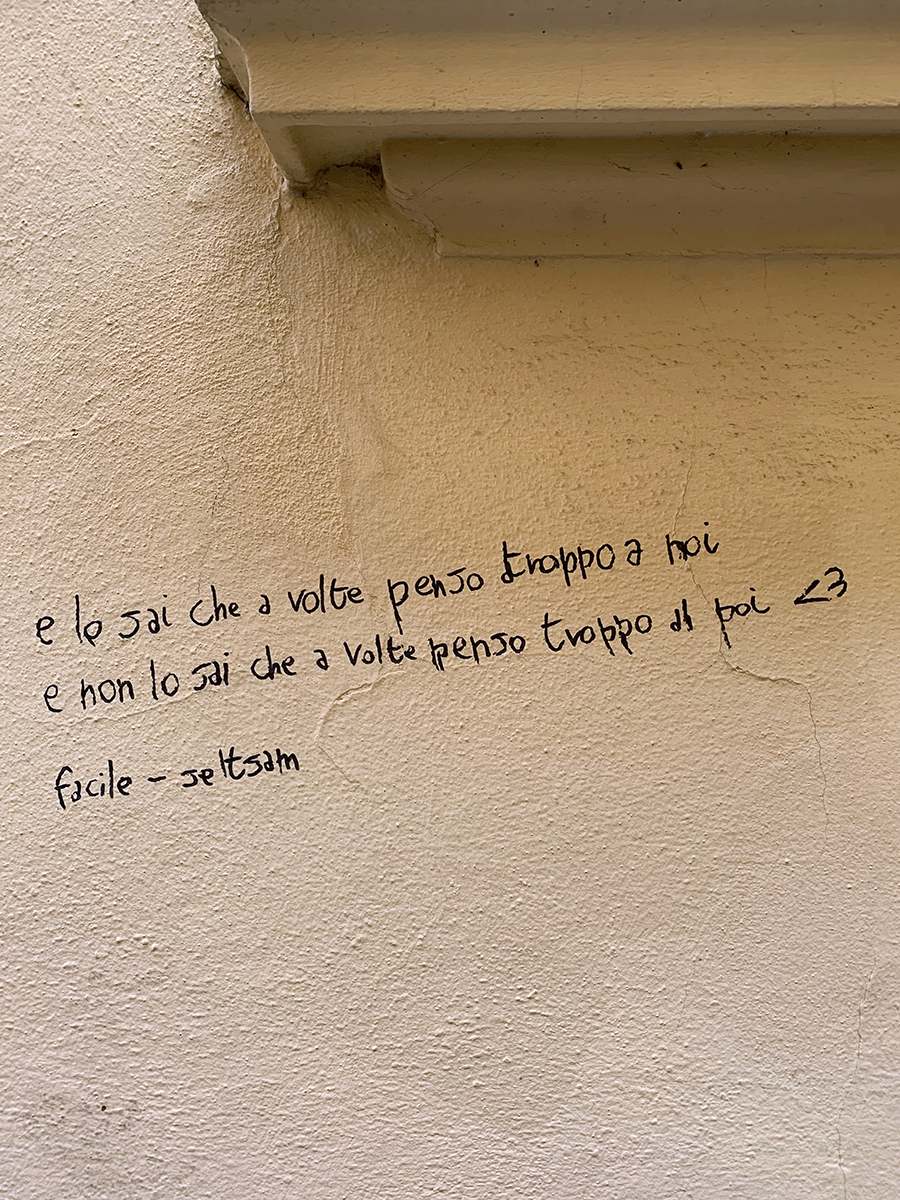 e lo sai che a volte penso troppo a noi
e non lo sai che a volte penso troppo al poi <3
facile - seltsam